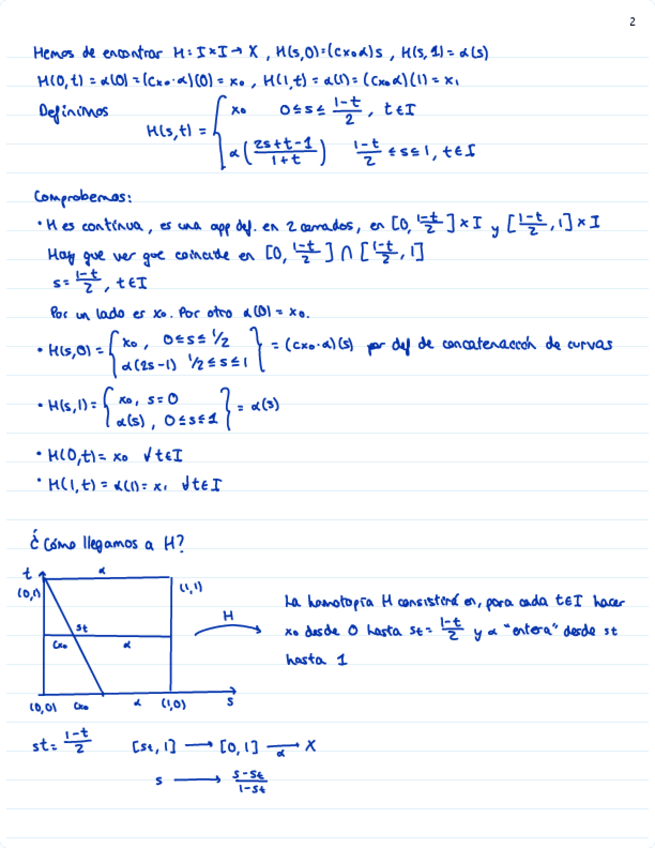 2
Hemos de encontrar H: I×I → X, H(s,0)=(cx₀·α)s, H(s,1)=α(s)
H(0,t)=α(0)=(cx₀·α)(0)=x₀, H(1,t)=α(1)=(cx₀·α)(1)=x₁
Definimos
H(s,t) = { x₀ 0≤s≤ (1-t)/2, t∈I
α((2s+t-1)/(1+t)) (1-t)/2 ≤s≤1, t∈I
Comprobemos:
• H es contínua, es una app def. en 2 cerrados, en [0, (1-t)/2]×I y [(1-t)/2, 1]×I
Hay que ver que coincide en [0, (1-t)/2] ∩ [(1-t)/2, 1]
s= (1-t)/2, t∈I
Por un lado es x₀. Por otro α(0)=x₀.
• H(s,0)= { x₀, 0≤s≤1/2
α(2s-1) 1/2≤s≤1 } = (cx₀·α)(s) por def de concatenación de curvas
• H(s,1)= { x₀, s=0
α(s), 0≤s≤1 } = α(s)
• H(0,t)= x₀ ∀t∈I
• H(1,t)= α(1)= x₁ ∀t∈I
¿Cómo llegamos a H?
t α
(0,1) (1,1)
st
cx₀ α
H
La homotopía H consistirá en, para cada t∈I hacer
x₀ desde 0 hasta st= (1-t)/2 y α "entera" desde st
hasta 1
(0,0) cx₀ α (1,0) s
st= (1-t)/2 [st, 1] → [0, 1] →α X
s → (s-st)/(1-st)